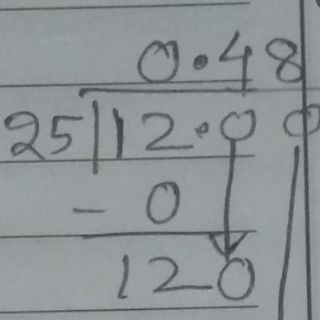 0.48
25|12.00
- 0
120